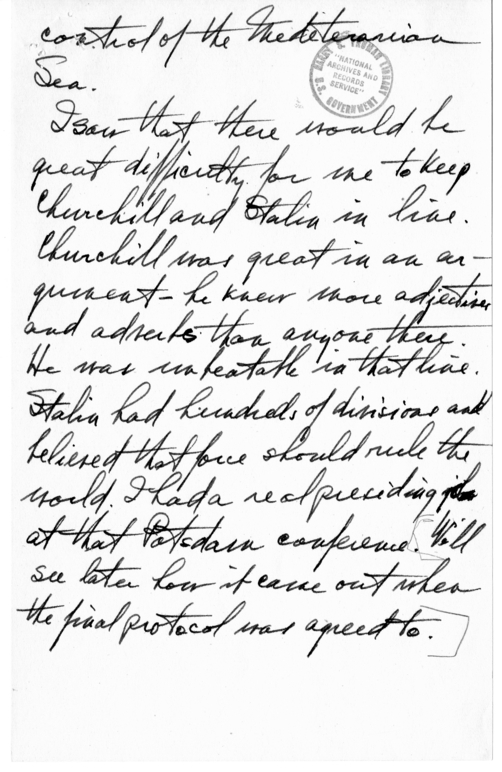 control of the Mediteranian
Sea.
HARRY S. TRUMAN LIBRARY
"NATIONAL
ARCHIVES AND
RECORDS
SERVICE"
U.S. GOVERNMENT
I saw that there would be
great difficulty for me to keep
Churchill and Stalin in line.
Churchill was great in an ar-
gument - he knew more adjectives
and adverbs than anyone there.
He was unbeatable in that line.
Stalin had hundreds of divisions and
believed that force should rule the
world. I had a real presiding job
at that Potsdam conference. [Will
see later how it came out when
the final protocol was agreed to.]